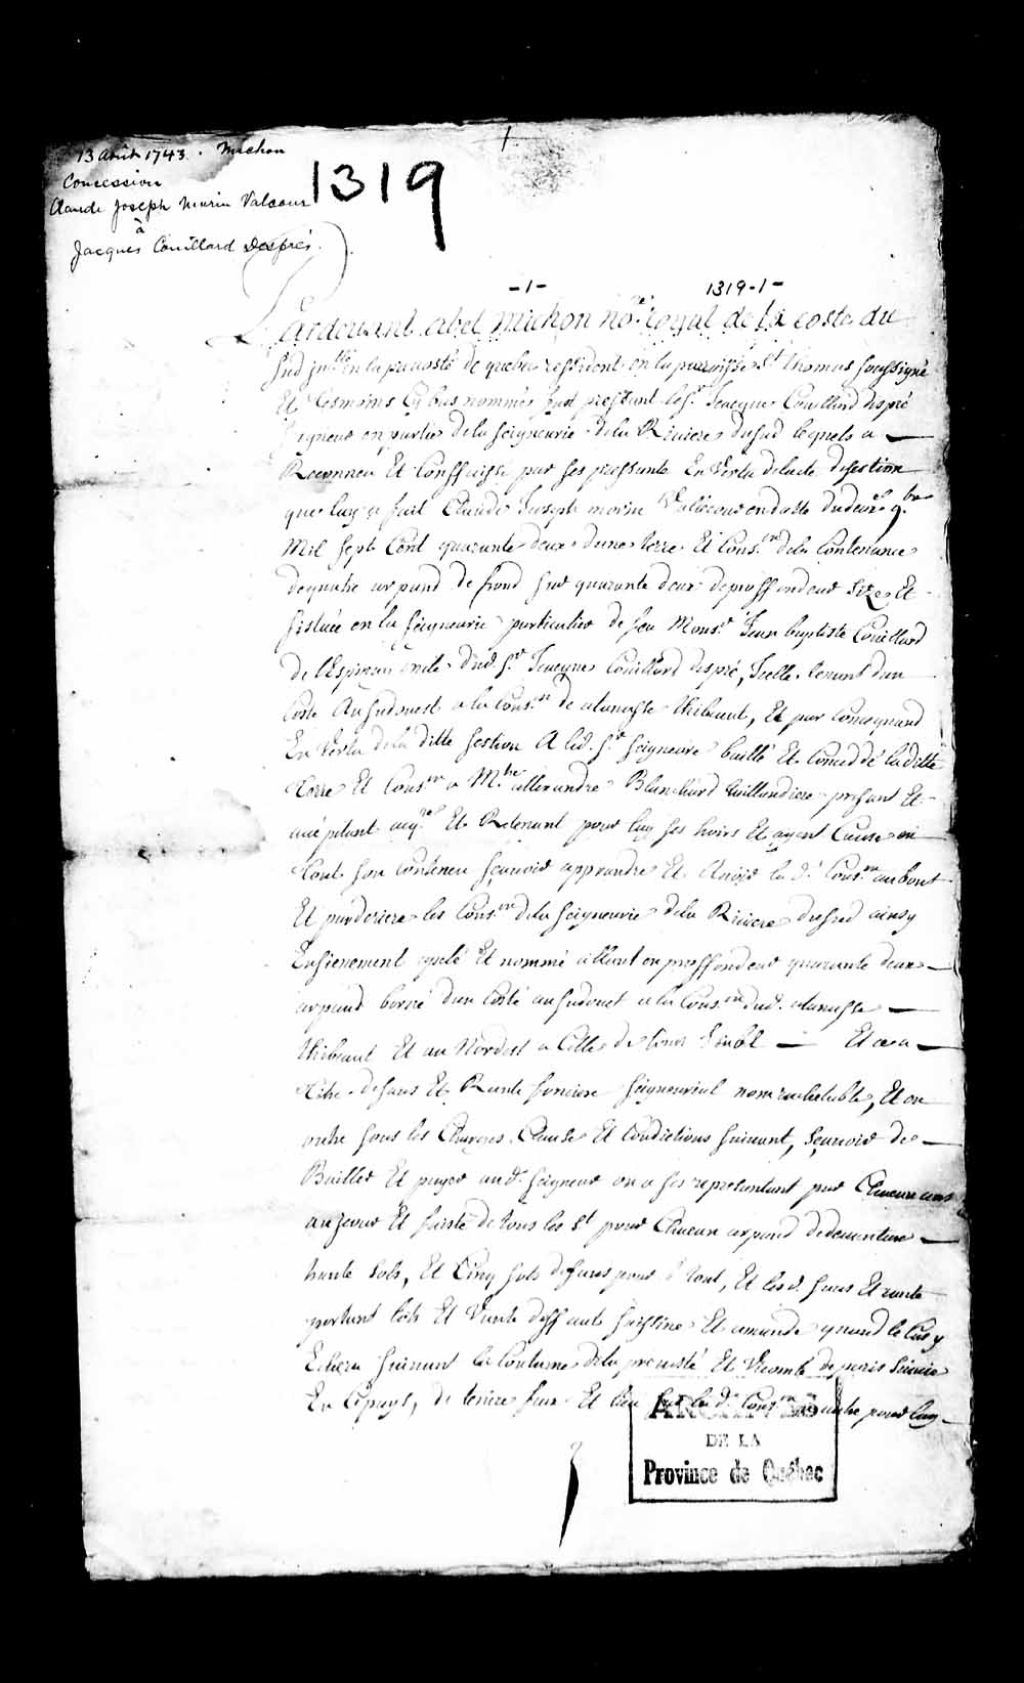 13 Août 1743 . Michon
Concession
Claude Joseph Morin Valcour
à
Jacques Couillard Després.
1319
-1-
1319-1-
Pardevant abel Michon no.re royal de la coste du
Sud en la prevosté de quebec ressident en la parroisse St thomas soussigné
Et tesmoins Cy bas nommés fust present le Sr. Jacque Couillard depré
seigneur en partie de la seigneurie de la Riviere du sud lequels a
Reconneu Et Conffaisse par ses pressante En Vertu de lacte
que luy a fait Claude Joseph morin Valcour en datte du 9.bre
Mil Sept Cent quarante deux dune terre Et Cons.on de la Contenance
de quatre arpand de frond sur quarante deux de proffondeur Size Et
sistuée en la seigneurie particulier de feu Mons.r Jean baptiste Couillard
de lEspinay dud. Sr. Jacque Couillard depré, Icelle tenant dun
Coste Au sudouest a la Cons.on de Thibaut, Et par
En Vertu de la ditte sestion A led. Sr seigneur baillé Et Conceddé la ditte
terre Et Cons.on a Blanchard presant Et
Et Retenant pour luy ses hoirs Et ayent Cause
tout son Contenu sçavoir apprandre Et la d. Cons.on au bout
Et par deriere les Cons.on de la seigneurie de la Riviere du sud ainsy
Ensienement apelé Et nommé allant en proffondeur quarante deux
arpand borné dun Costé au sudouet a la Cons.on dud.
Thibaut Et au Nordest a Celle de Et ce a
titre de sans Et Rante fonciere seigneurial non rachetable, Et en
outre sous les Charges Clause Et Condictions suivant, Sçavoir de
Bailler Et payer aud. seigneur ou a ses representant par Chacun ans
au jour Et feste de tous les St pour Chacun arpand de devanture
trante Sols, Et Cinq sols de sans pour le tout, Et lesd. sans Et rante
portant lots Et Vante deffauts saissine Et amande quand le Cas y
Echera suivant la Coutume de la prevosté Et Vicomté de paris
En Ce pays, de tenir feu Et lieu sur lad. Cons.on pour luy
ARCHIVES
DE LA
Province de Québec